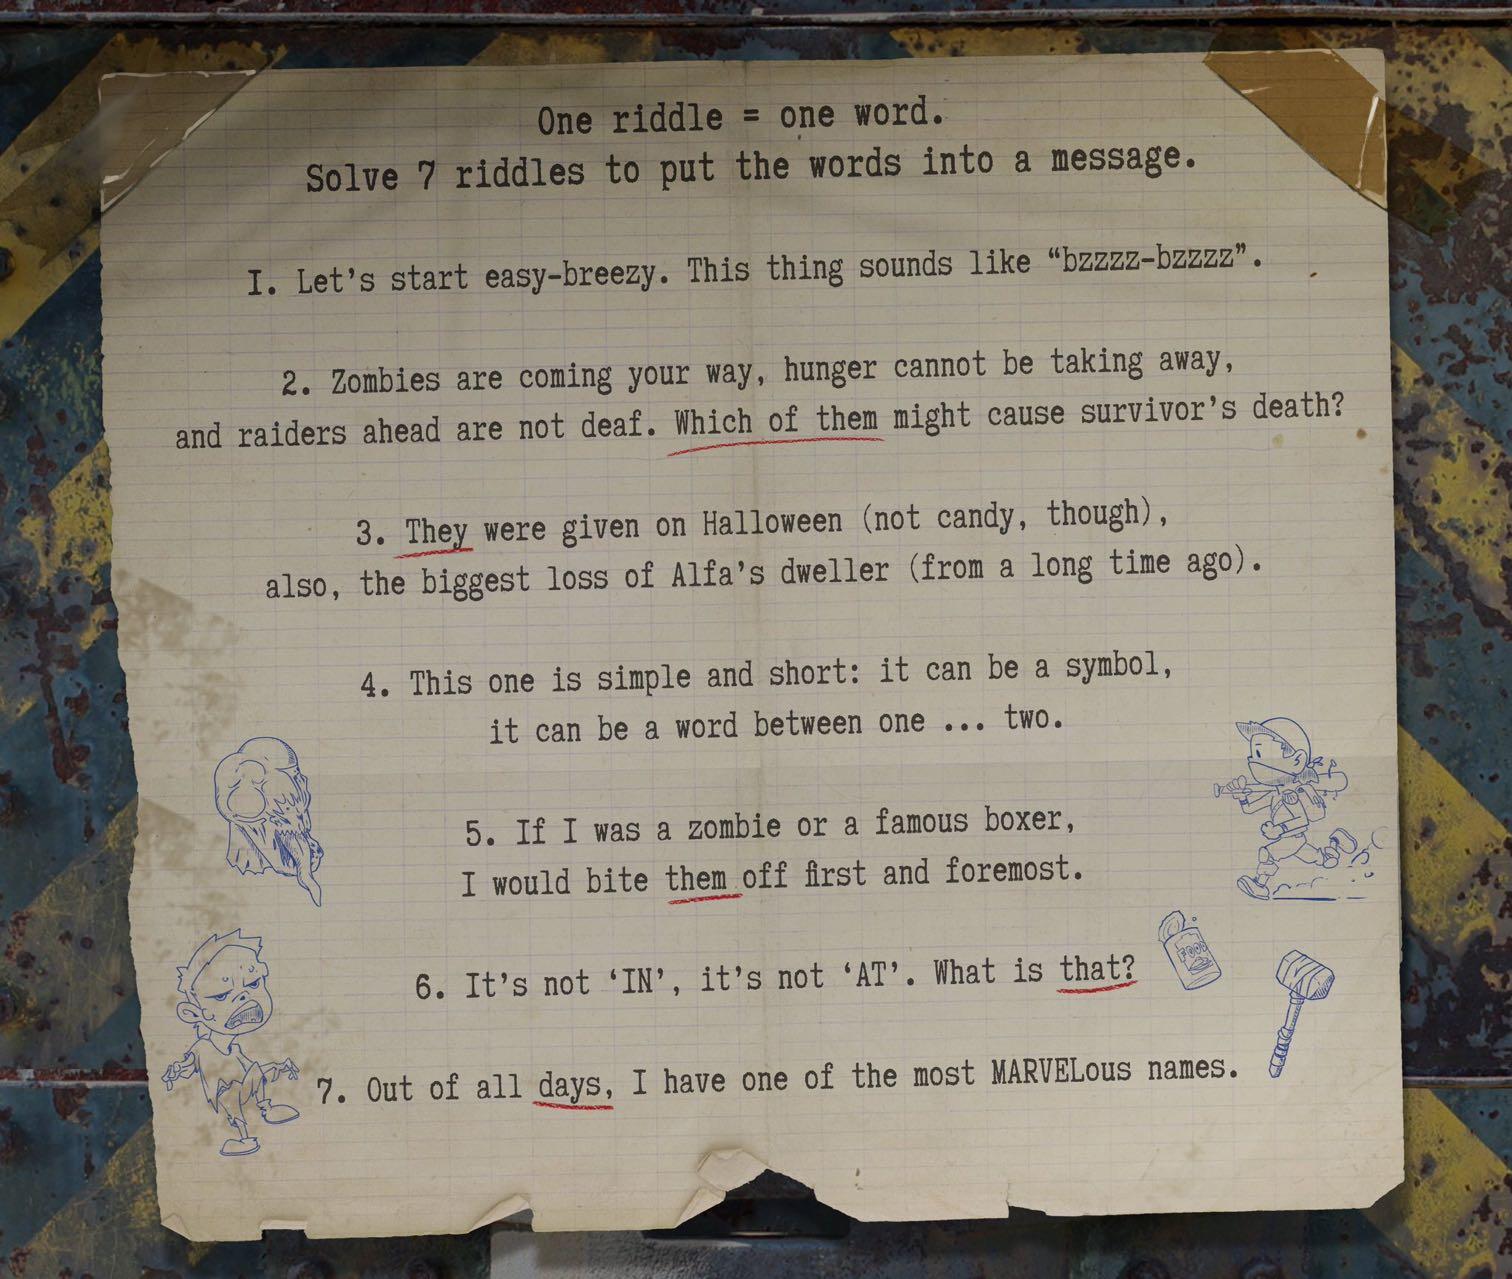 One riddle = one word.
Solve 7 riddles to put the words into a message.
I. Let's start easy-breezy. This thing sounds like “bzzzz-bzzzz”.
2. Zombies are coming your way, hunger cannot be taking away,
and raiders ahead are not deaf. Which of them might cause survivor's death?
3. They were given on Halloween (not candy, though),
also, the biggest loss of Alfa's dweller (from a long time ago).
4. This one is simple and short: it can be a symbol,
it can be a word between one ... two.
5. If I was a zombie or a famous boxer,
I would bite them off first and foremost.
6. It's not ‘IN’, it's not ‘AT’. What is that?
FOOD
7. Out of all days, I have one of the most MARVELous names.